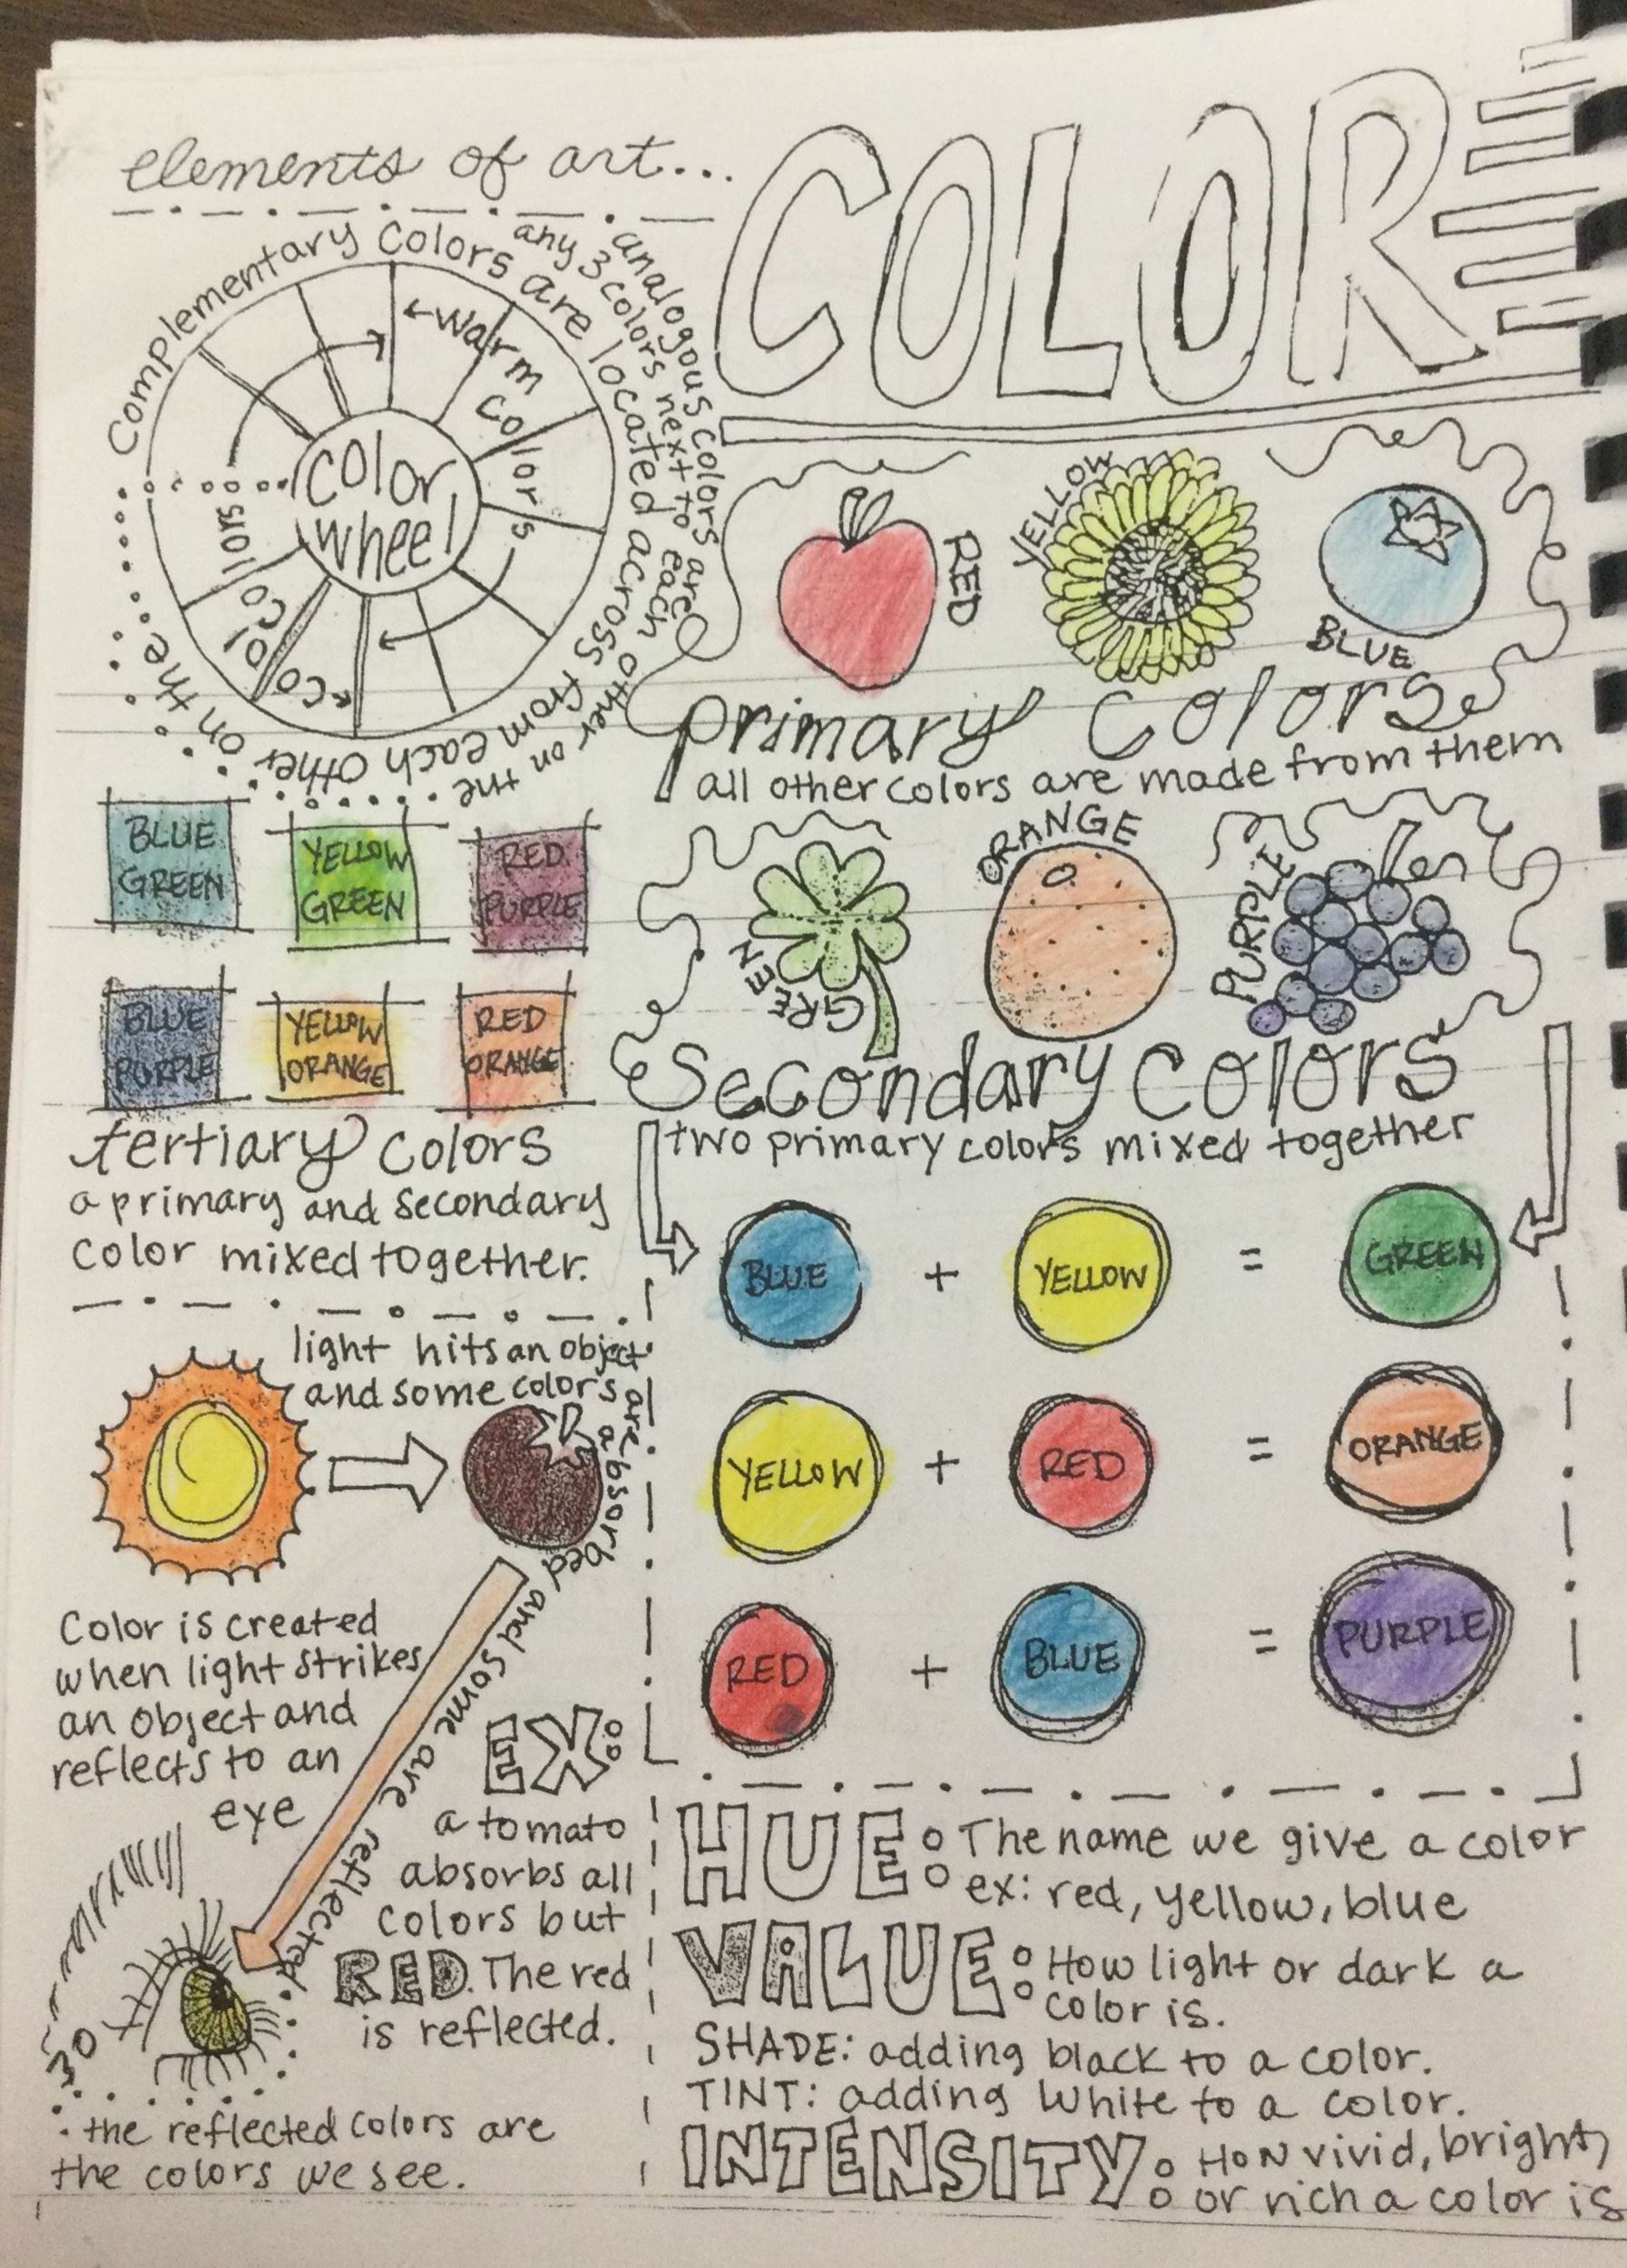 elements of art...
COLOR
Complementary colors are located across from each other on the
analogous colors are
any 3 colors next to each other on the
color
wheel
←warm colors
cool colors
RED
YELLOW
BLUE
primary colors
all other colors are made from them
GREEN
ORANGE
PURPLE
secondary colors
two primary colors mixed together
BLUE + YELLOW = GREEN
YELLOW + RED = ORANGE
RED + BLUE = PURPLE
BLUE
GREEN
YELLOW
GREEN
RED
PURPLE
BLUE
PURPLE
YELLOW
ORANGE
RED
ORANGE
tertiary colors
a primary and secondary
color mixed together.
light hits an object
and some colors are absorbed and some are reflected.
Color is created
when light strikes
an object and
reflects to an
eye
EX:
a tomato
absorbs all
colors but
RED. The red
is reflected.
so
the reflected colors are
the colors we see.
HUE: The name we give a color
ex: red, yellow, blue
VALUE: How light or dark a
color is.
SHADE: adding black to a color.
TINT: adding white to a color.
INTENSITY: How vivid, bright,
or rich a color is